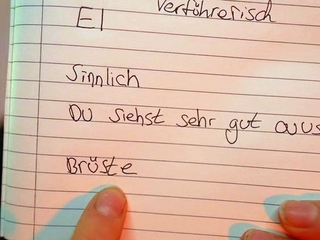 Verführerisch
El
Sinnlich
Du siehst sehr gut aus
Brüste